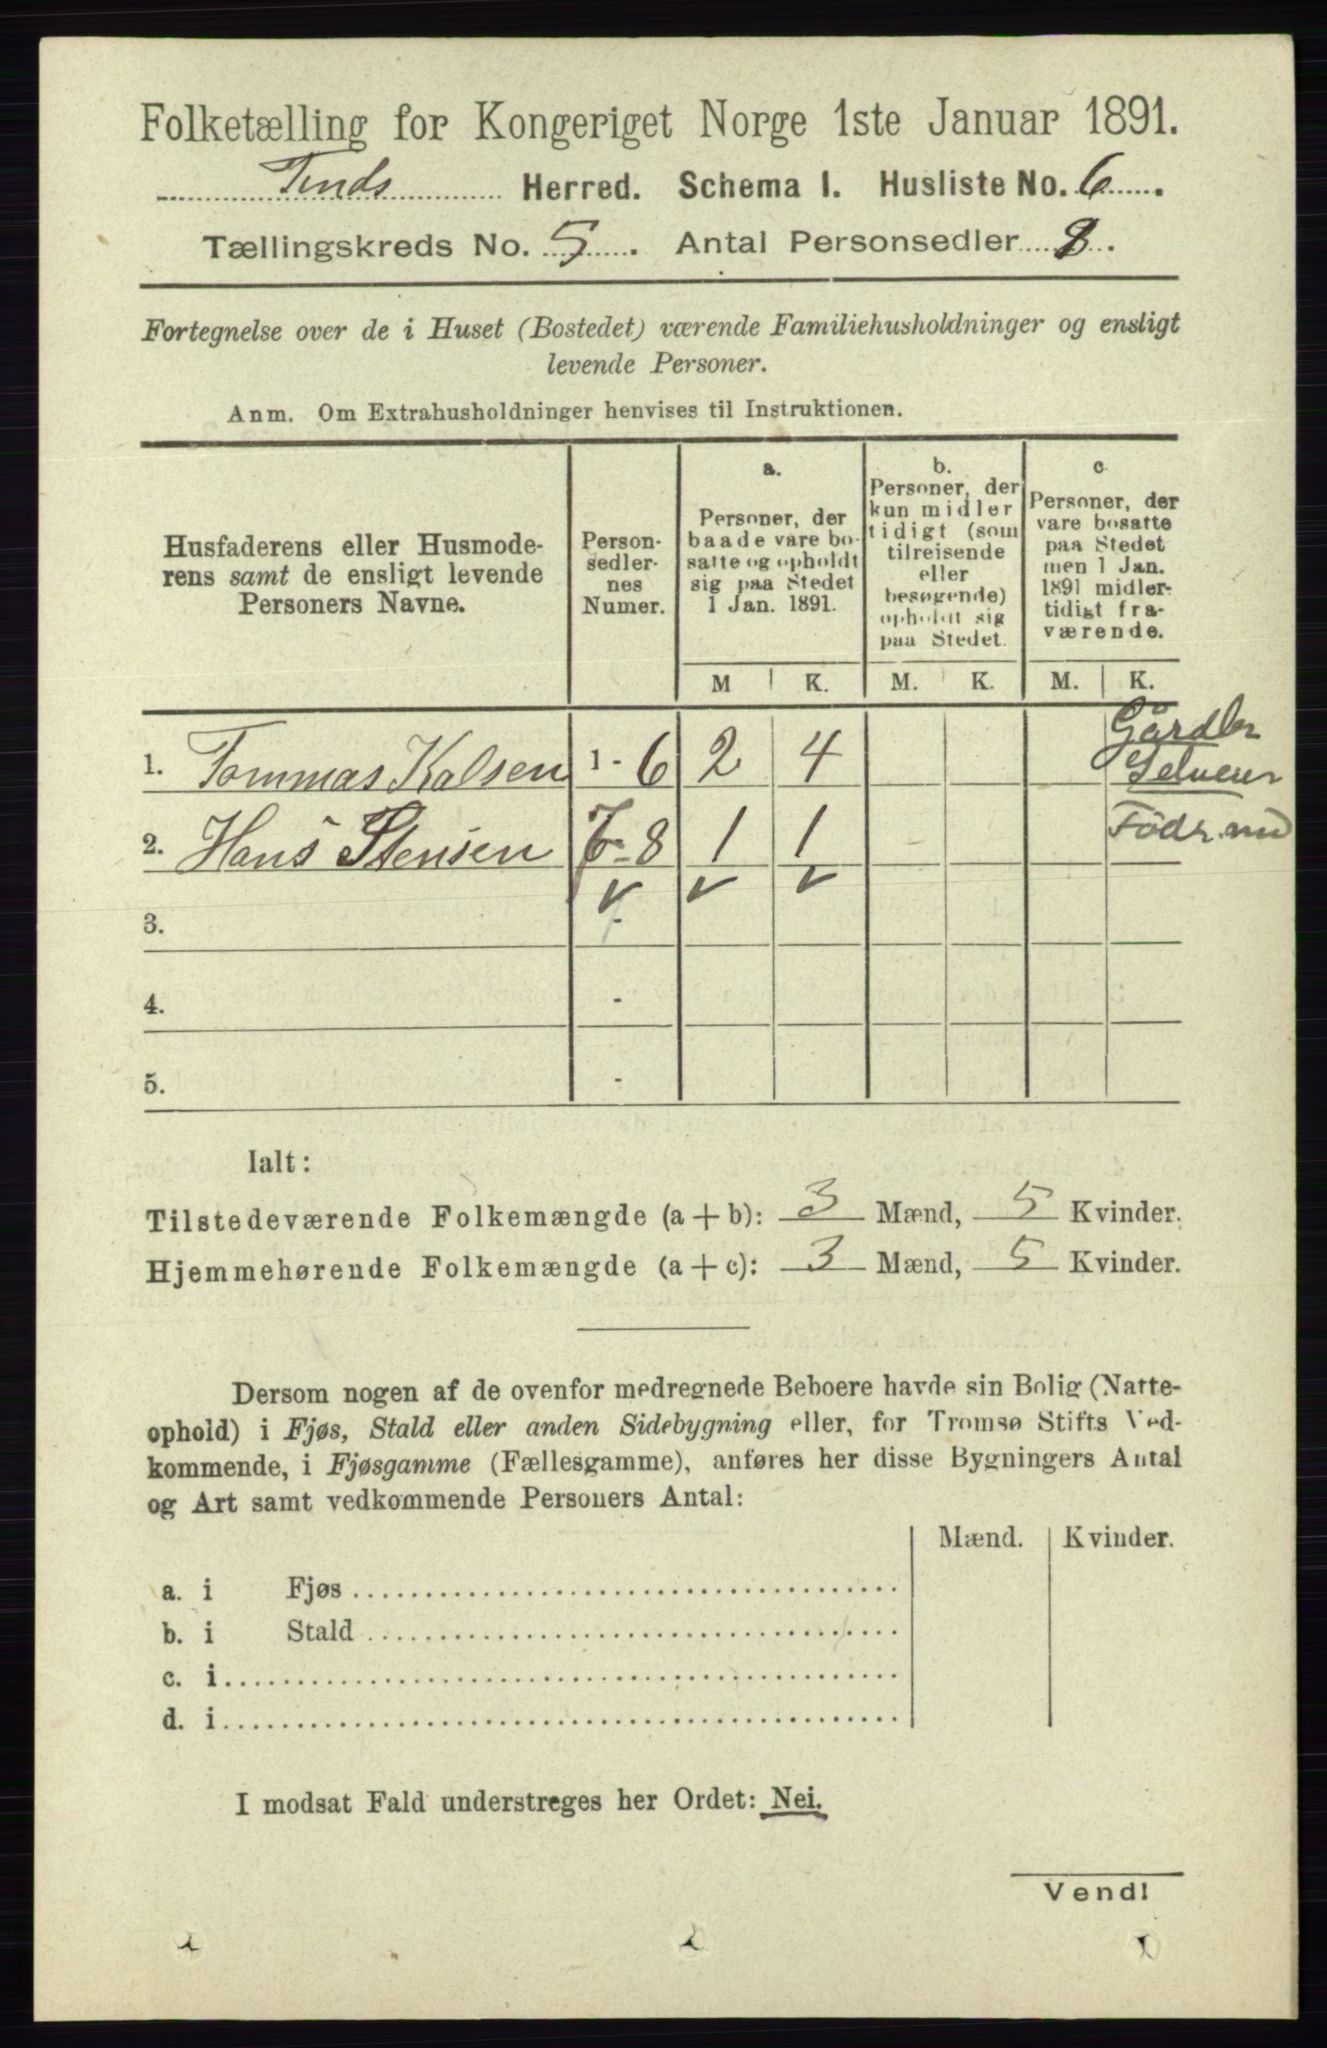 Folketælling for Kongeriget Norge 1ste Januar 1891.
Tinds Herred. Schema I. Husliste No. 6.
Tællingskreds No. 5. Antal Personsedler 8.
Fortegnelse over de i Huset (Bostedet) værende Familiehusholdninger og ensligt
levende Personer.
Anm. Om Extrahusholdninger henvises til Instruktionen.
Husfaderens eller Husmode-
rens samt de ensligt levende
Personers Navne.
Person-
sedler-
nes
Numer.
a.
Personer, der
baade vare bo-
satte og opholdt
sig paa Stedet
1 Jan. 1891.
b.
Personer, der
kun midler
tidigt (som
tilreisende
eller
besøgende)
opholdt sig
paa Stedet.
c
Personer, der
vare bosatte
paa Stedet
men 1 Jan.
1891 midler-
tidigt fra-
værende.
M K. M. K. M. K.
1. Tommas Kalsen 1 - 6 2 4 Gårdbr
Selveier
2. Hans Stensen 7 - 8 1 1 Föder
3. -
4. -
5. -
Ialt:
Tilstedeværende Folkemængde (a + b): 3 Mænd, 5 Kvinder.
Hjemmehørende Folkemængde (a + c): 3 Mænd, 5 Kvinder.
Dersom nogen af de ovenfor medregnede Beboere havde sin Bolig (Natte-
ophold) i Fjøs, Stald eller anden Sidebygning eller, for Tromsø Stifts Ved-
kommende, i Fjøsgamme (Fællesgamme), anføres her disse Bygningers Antal
og Art samt vedkommende Personers Antal:
Mænd. Kvinder.
a. i Fjøs
b. i Stald
c. i
d. i
I modsat Fald understreges her Ordet: Nei.
Vend!